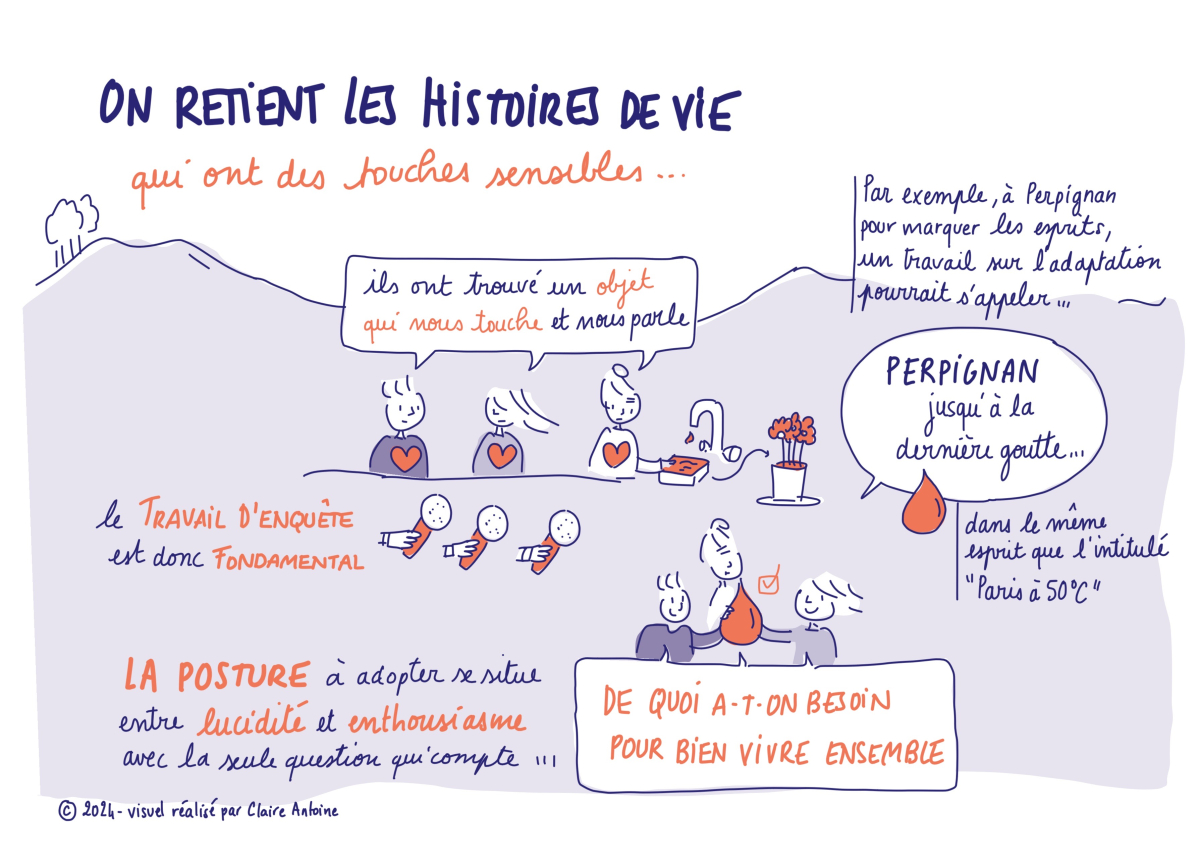 ON RETIENT LES HISTOIRES DE VIE
qui ont des touches sensibles...
Par exemple, à Perpignan
pour marquer les esprits,
un travail sur l'adaptation
pourrait s'appeler...
ils ont trouvé un objet
qui nous touche et nous parle
PERPIGNAN
jusqu'à la
dernière goutte...
le TRAVAIL D'ENQUÊTE
est donc FONDAMENTAL
dans le même
esprit que l'intitulé
"Paris à 50°C"
LA POSTURE à adopter se situe
entre lucidité et enthousiasme
avec la seule question qui compte ...
DE QUOI A-T-ON BESOIN
POUR BIEN VIVRE ENSEMBLE
© 2024 - visuel réalisé par Claire Antoine